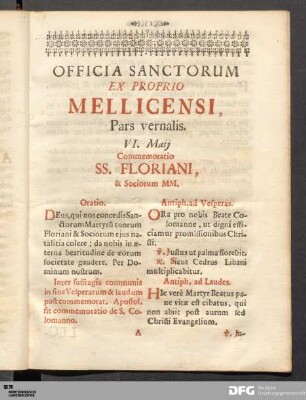 OFFICIA SANCTORUM
EX PROPRIO
MELLICENSI,
Pars vernalis.
VI. Maij
Commemoratio
SS. FLORIANI,
& Sociorum MM.
Oratio.
DEus, qui nos concedis San-
ctorum Martyrũ tuorum
Floriani & Sociorum ejus na-
talitia colere; da nobis in æ-
terna beatitudine de eorum
societate gaudere. Per Do-
minum nostrum.
Inter suffragia communia
in fine Vesperarum & laudum
post commemorat. Apostol.
fit commemoratio de S. Co-
lomanno.
Antiph. ad Vesperas.
ORa pro nobis Beate Co-
lomanne, ut digni effi-
ciamur promissionibus Chri-
sti.
℣. Justus ut palma florebit.
℟. Sicut Cedrus Libani
multiplicabitur.
Antiph. ad Laudes.
HIc verè Martyr Beatus pa-
ne vitæ est cibatus, qui
non abiit post aurum sed
Christi Evangelium.
A
℣. Ju-
DFG